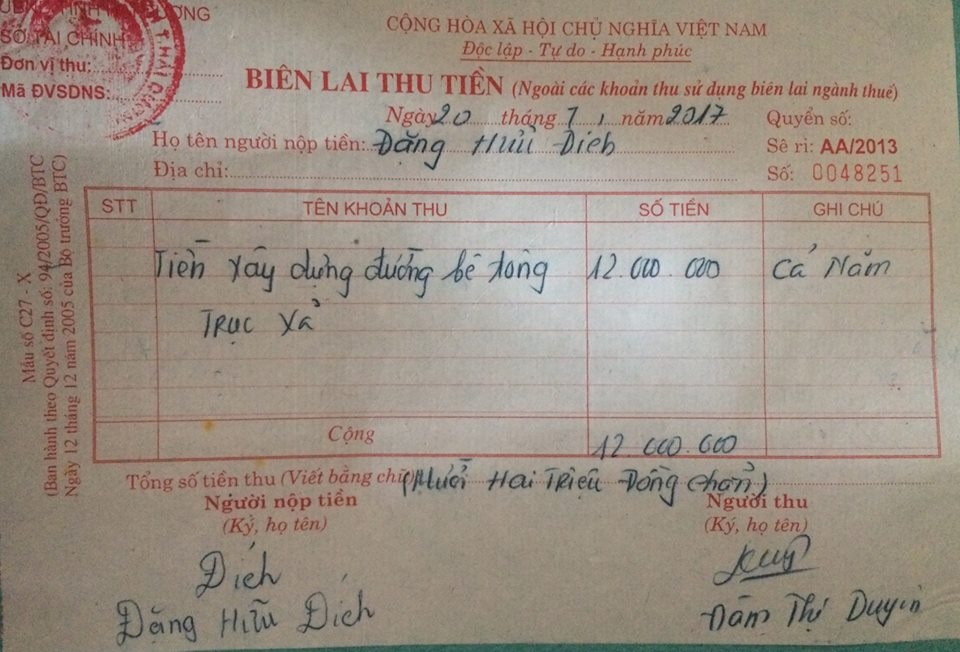 CỘNG HÒA XÃ HỘI CHỦ NGHĨA VIỆT NAM
Độc lập - Tự do - Hạnh phúc
SỞ TÀI CHÍNH
Đơn vị thu:
Mã ĐVSDNS:
BIÊN LAI THU TIỀN (Ngoài các khoản thu sử dụng biên lai ngành thuế)
Ngày 20 tháng 7 năm 2017
Quyển số:
Họ tên người nộp tiền: Đặng Hữu Đích
Sê ri: AA/2013
Địa chỉ:
Số: 0048251
Mẫu số C27 - X
(Ban hành theo Quyết định số: 94/2005/QĐ/BTC
Ngày 12 tháng 12 năm 2005 của Bộ trưởng BTC)
STT TÊN KHOẢN THU SỐ TIỀN GHI CHÚ
Tiền xây dựng đường bê tông 12.000.000 Cả Năm
Trục xã
Cộng 12.000.000
Tổng số tiền thu (Viết bằng chữ) (Mười Hai Triệu Đồng chẵn)
Người nộp tiền Người thu
(Ký, họ tên) (Ký, họ tên)
Đích
Đặng Hữu Đích
Đàm Thị Duyên